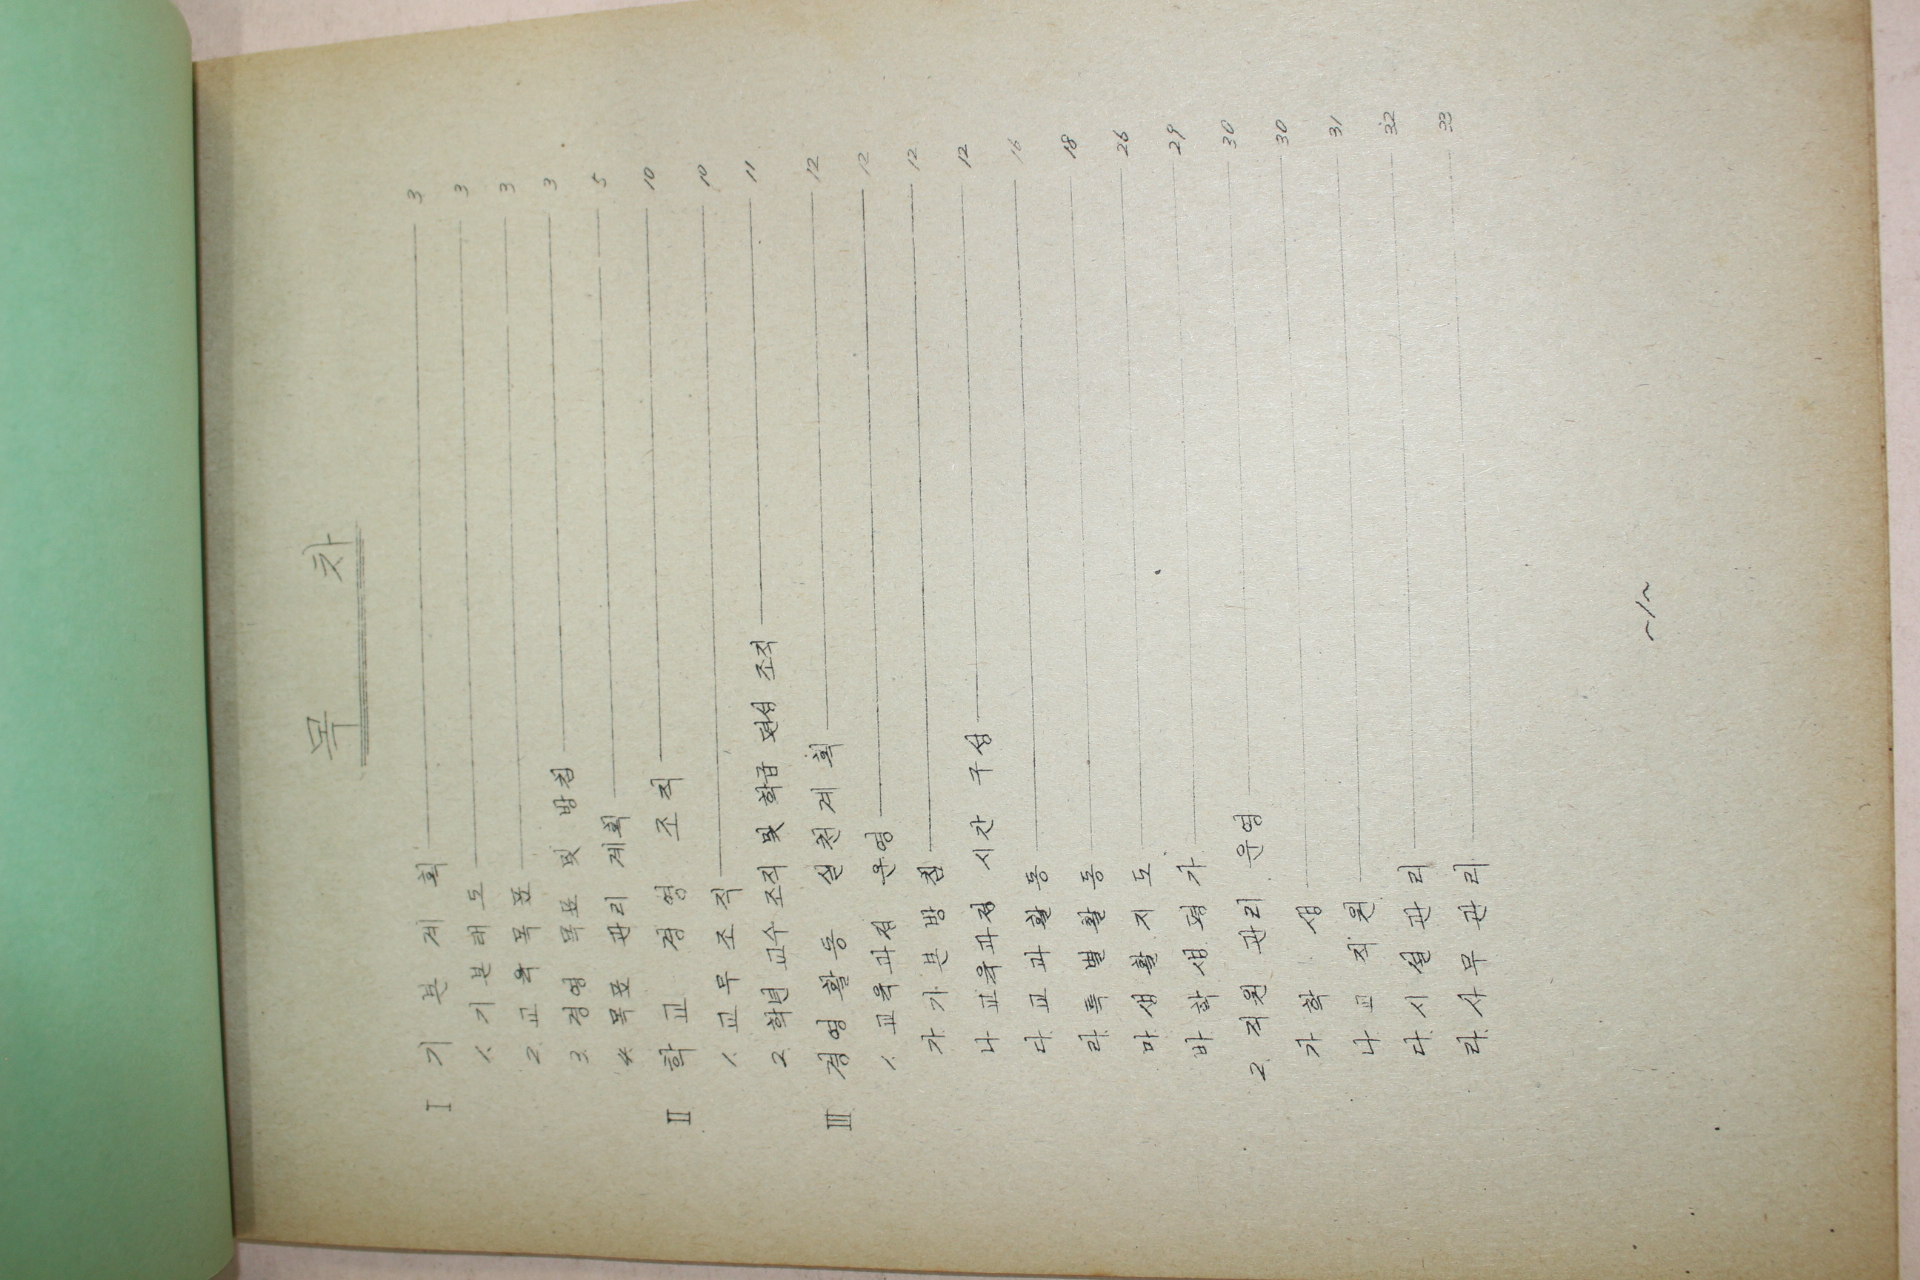 목 차
I 기 본 계 획 3
1. 기 본 태 도 3
2. 교 육 목 표 3
3. 경영 목표 및 방침 3
4. 목표 관리 계획 5
II 학 교 경 영 조 직 10
1. 교 무 조 직 10
2. 학년 교수 조직 및 학급 편성 조직 11
III 경 영 활 동 실 천 계 획 12
1. 교육과정 운영 12
가 기 본 방 침 12
나 교육과정 시간 구성 12
다. 교 과 활 동 16
라. 특 별 활 동 18
마. 생 활 지 도 26
바. 학 생 평 가 29
2. 지원 관리 운영 30
가 학 생 30
나 교 직 원 31
다. 시 설 관 리 32
라. 사 무 관 리 33
~1~